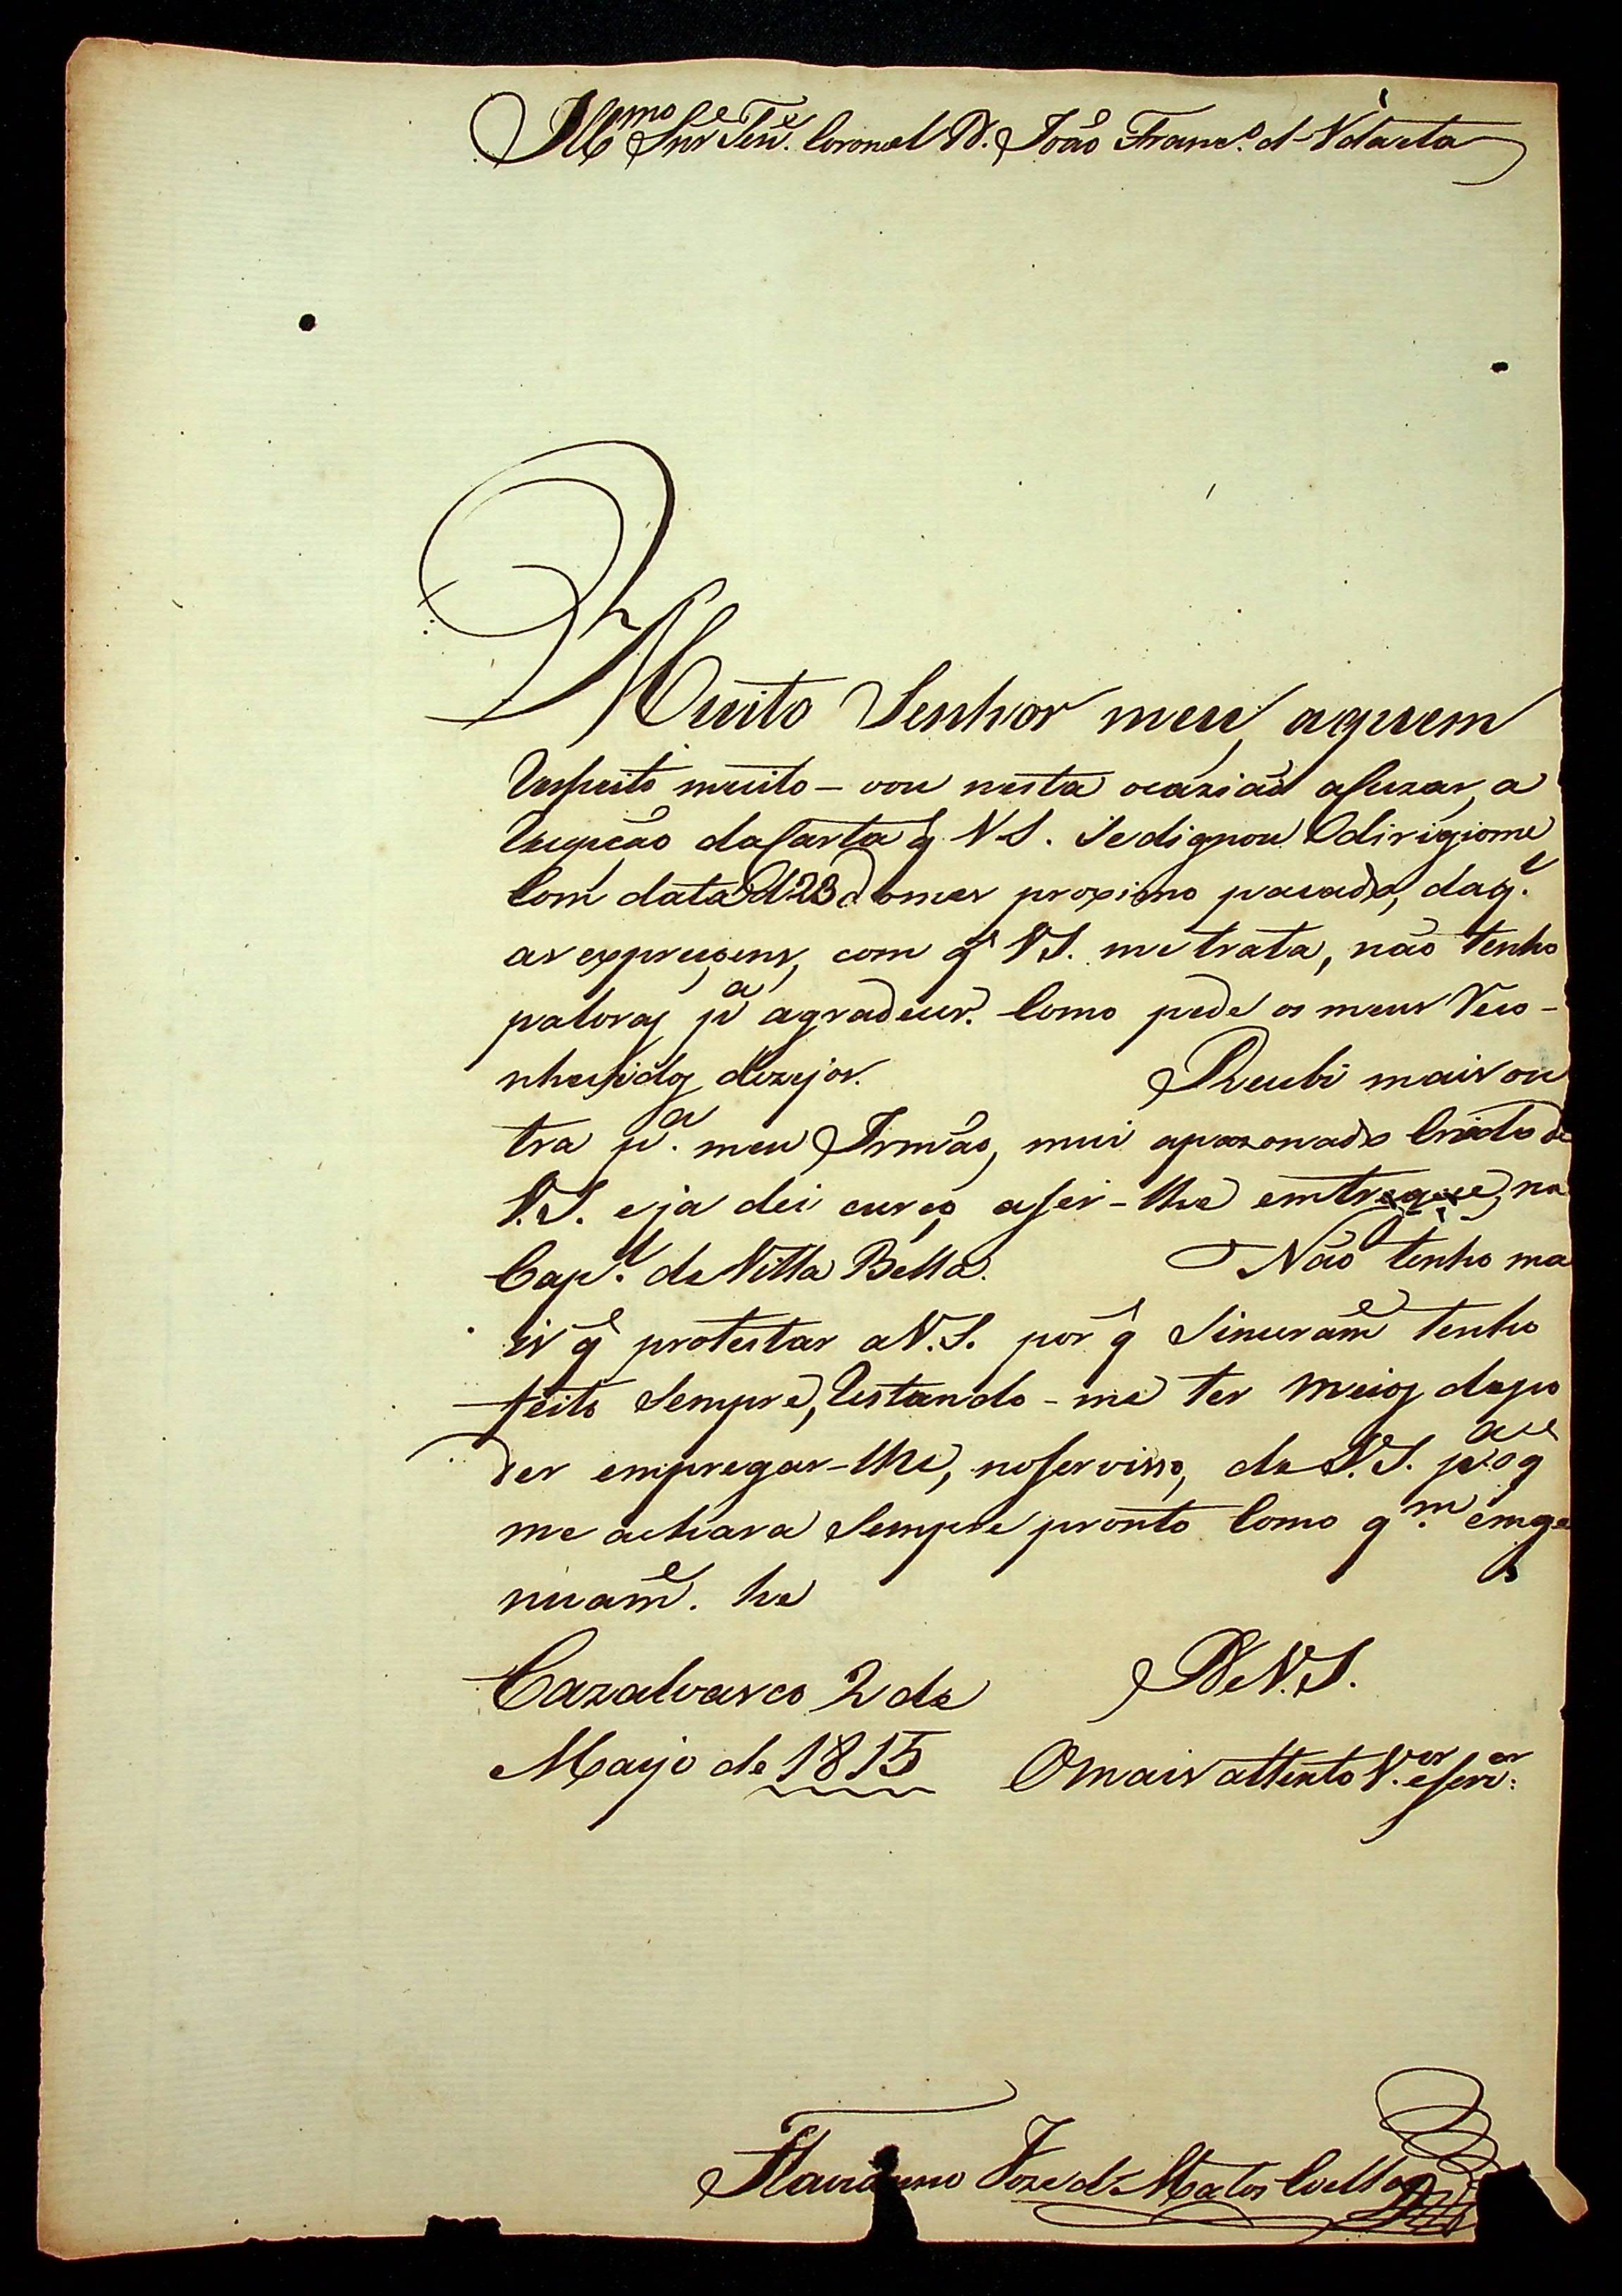 Ill.mo Snr. Ten.e Coronel D. João Franc.o d Velaeta
Muito Senhor meu, aquem
Respeito muito – vou nesta ocazião acuzar, a
Recpeção da Carta q̃ V S. Se dignou dirigiome
Com data d 23 do mes proximo pacado, daq.l
as expreçoens, com q̃ V S. me trata, não tenho
palavras p.a agradecer. Como pede os meus Reco-
nhecidos dezejos. Recebi mais ou
tra p.a meu Irmão, mui apaxonado Criado de
V. S. e ja dei curço aser-lhe emtregue, na
Cap.l de Villa Bella. Não tenho ma
is q̃ protestar a V. S. por q̃ Sinceram.e tenho
feito Sempre, Restando-me ter meios depo
der empregar-lhe, no servisso, de V. S. p.a o que
me achara Sempre pronto Como q.m emge
nuam.e he
Cazalvasco 2 de De V. S.
Mayo de 1815 O mais attento V.or e serv.or
Flaviano Joze d Matos Coelho